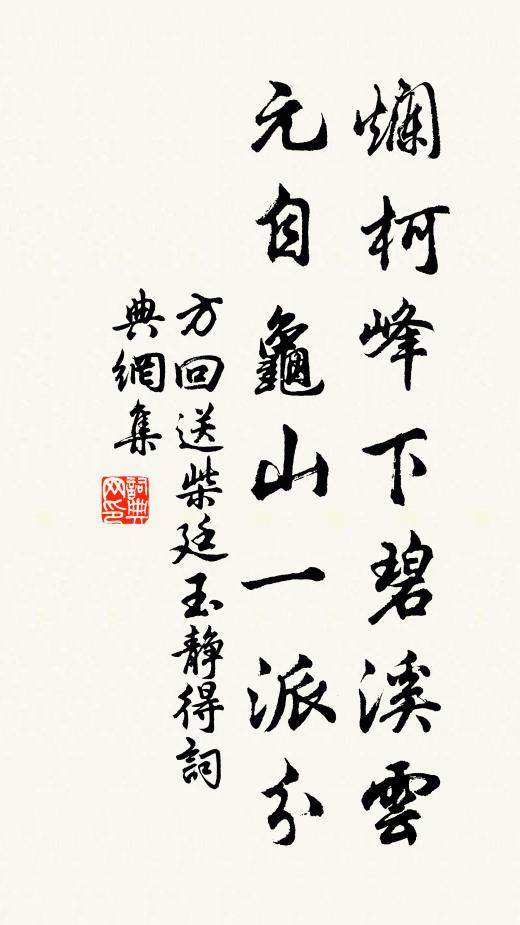 爛柯峰下碧溪雲
元自龜山一派分
方回送柴廷玉靜得詞
典網集
詞典
网印